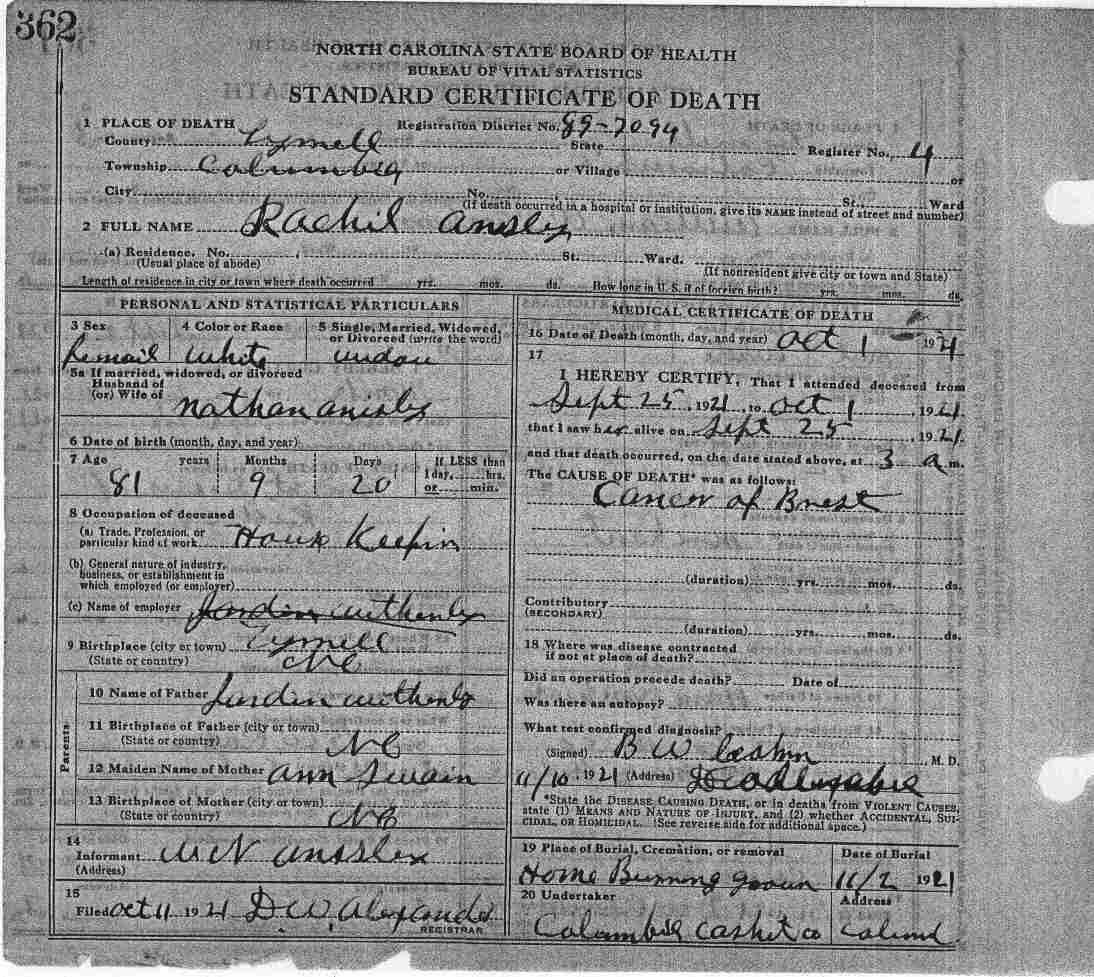 362
NORTH CAROLINA STATE BOARD OF HEALTH
BUREAU OF VITAL STATISTICS
STANDARD CERTIFICATE OF DEATH
1 PLACE OF DEATH Registration District No. 89-7094
County Tyrrell State Register No. 4
Township Columbia or Village or
City No. St. Ward
(If death occurred in a hospital or institution, give its NAME instead of street and number)
2 FULL NAME Rachil Ansley
(a) Residence. No. St. Ward.
(Usual place of abode) (If nonresident give city or town and State)
Length of residence in city or town where death occurred yrs. mos. ds. How long in U. S. if of foreign birth? yrs. mos. ds.
PERSONAL AND STATISTICAL PARTICULARS
3 Sex 4 Color or Race 5 Single, Married, Widowed, or Divorced (write the word)
Femail White Widow
5a If married, widowed, or divorced
Husband of
(or) Wife of Nathan Ansley
6 Date of birth (month, day, and year)
7 Age years Months Days If LESS than
1 day, hrs.
or min.
81 9 20
8 Occupation of deceased
(a) Trade, Profession, or
particular kind of work House Keepin
(b) General nature of industry,
business, or establishment in
which employed (or employer)
(c) Name of employer
9 Birthplace (city or town) Tyrrell
(State or country) NC
Parents
10 Name of Father
11 Birthplace of Father (city or town)
(State or country) NC
12 Maiden Name of Mother Ann Swain
13 Birthplace of Mother (city or town)
(State or country) NC
14
Informant W N Ansley
(Address)
15
Filed Oct 11 1921 D W Alexander
REGISTRAR
MEDICAL CERTIFICATE OF DEATH
16 Date of Death (month, day, and year) Oct 1 1921
17
I HEREBY CERTIFY, That I attended deceased from
Sept 25, 1921, to Oct 1, 1921
that I saw her alive on Sept 25, 1921.
and that death occurred, on the date stated above, at 3 a m.
The CAUSE OF DEATH* was as follows:
Cancer of Brest
(duration) yrs. mos. ds.
Contributory
(SECONDARY)
(duration) yrs. mos. ds.
18 Where was disease contracted
if not at place of death?
Did an operation precede death? Date of
Was there an autopsy?
What test confirmed diagnosis?
(Signed) B W , M. D.
11/10, 1921 (Address)
*State the DISEASE CAUSING DEATH, or in deaths from VIOLENT CAUSES,
state (1) MEANS AND NATURE OF INJURY, and (2) whether ACCIDENTAL, SUI-
CIDAL, OR HOMICIDAL. (See reverse side for additional space.)
19 Place of Burial, Cremation, or removal Date of Burial
Home 11/2 1921
20 Undertaker Address
Columbia Casket Co